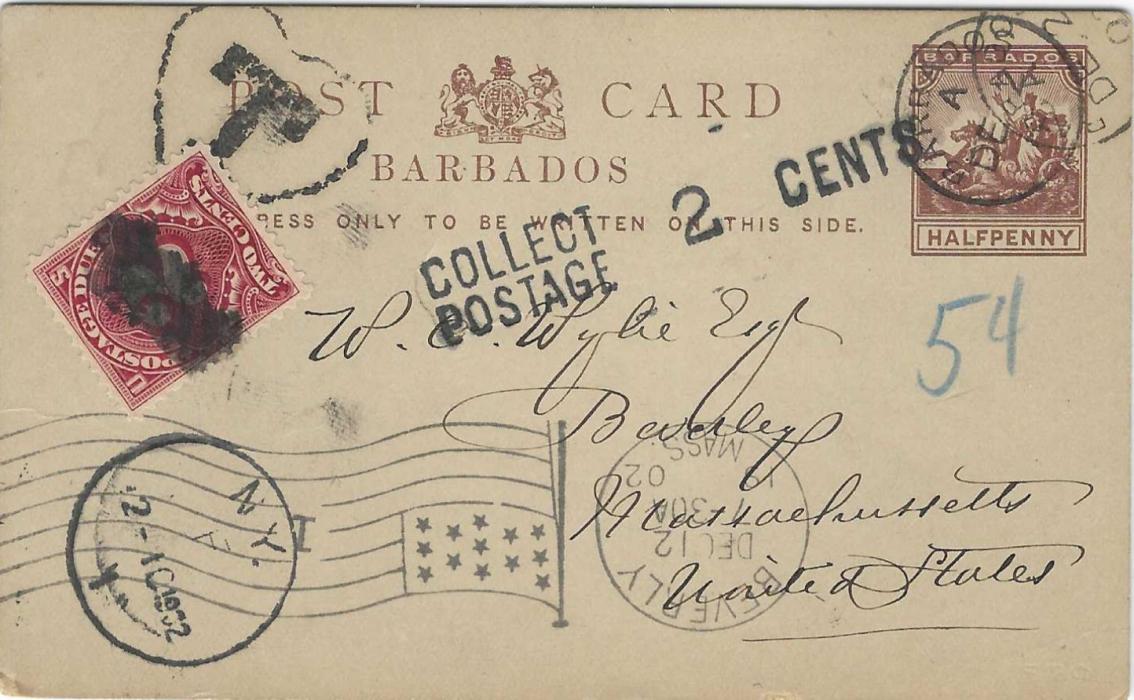 T
POST CARD
BARBADOS
RESS ONLY TO BE WRITTEN ON THIS SIDE.
BARBADOS
HALFPENNY
BARBADOS
A
DE
COLLECT
POSTAGE
2 CENTS
POSTAGE DUE
TWO CENTS
U S
54
W. Wylie Esq
Beverley
Massachussetts
United States
N.Y.
1902
I
BEVERLY
DEC 12
7-30A
02
MASS.